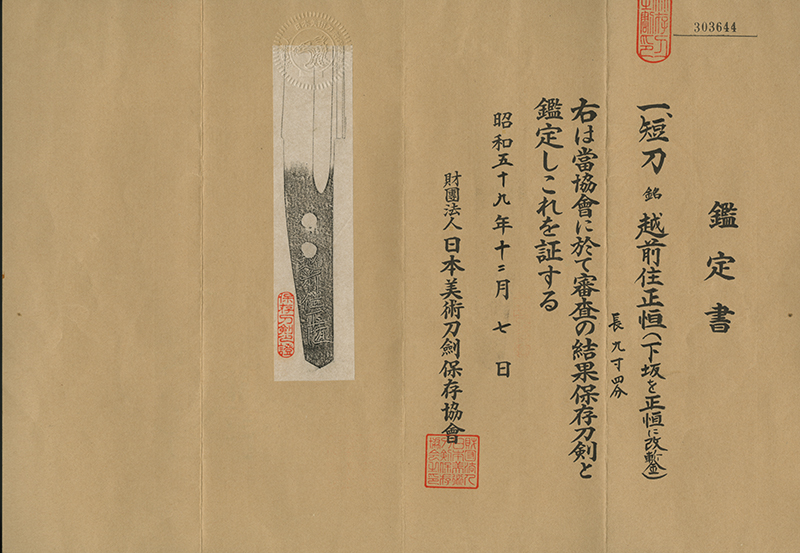 303644
鑑定書
一、短刀 銘 越前住正恒(下坂を正恒に改鏨)
長 九寸四分
右は當協會に於て審査の結果保存刀剣と
鑑定しこれを証する
昭和五十九年十二月七日
財團法人 日本美術刀劍保存協會